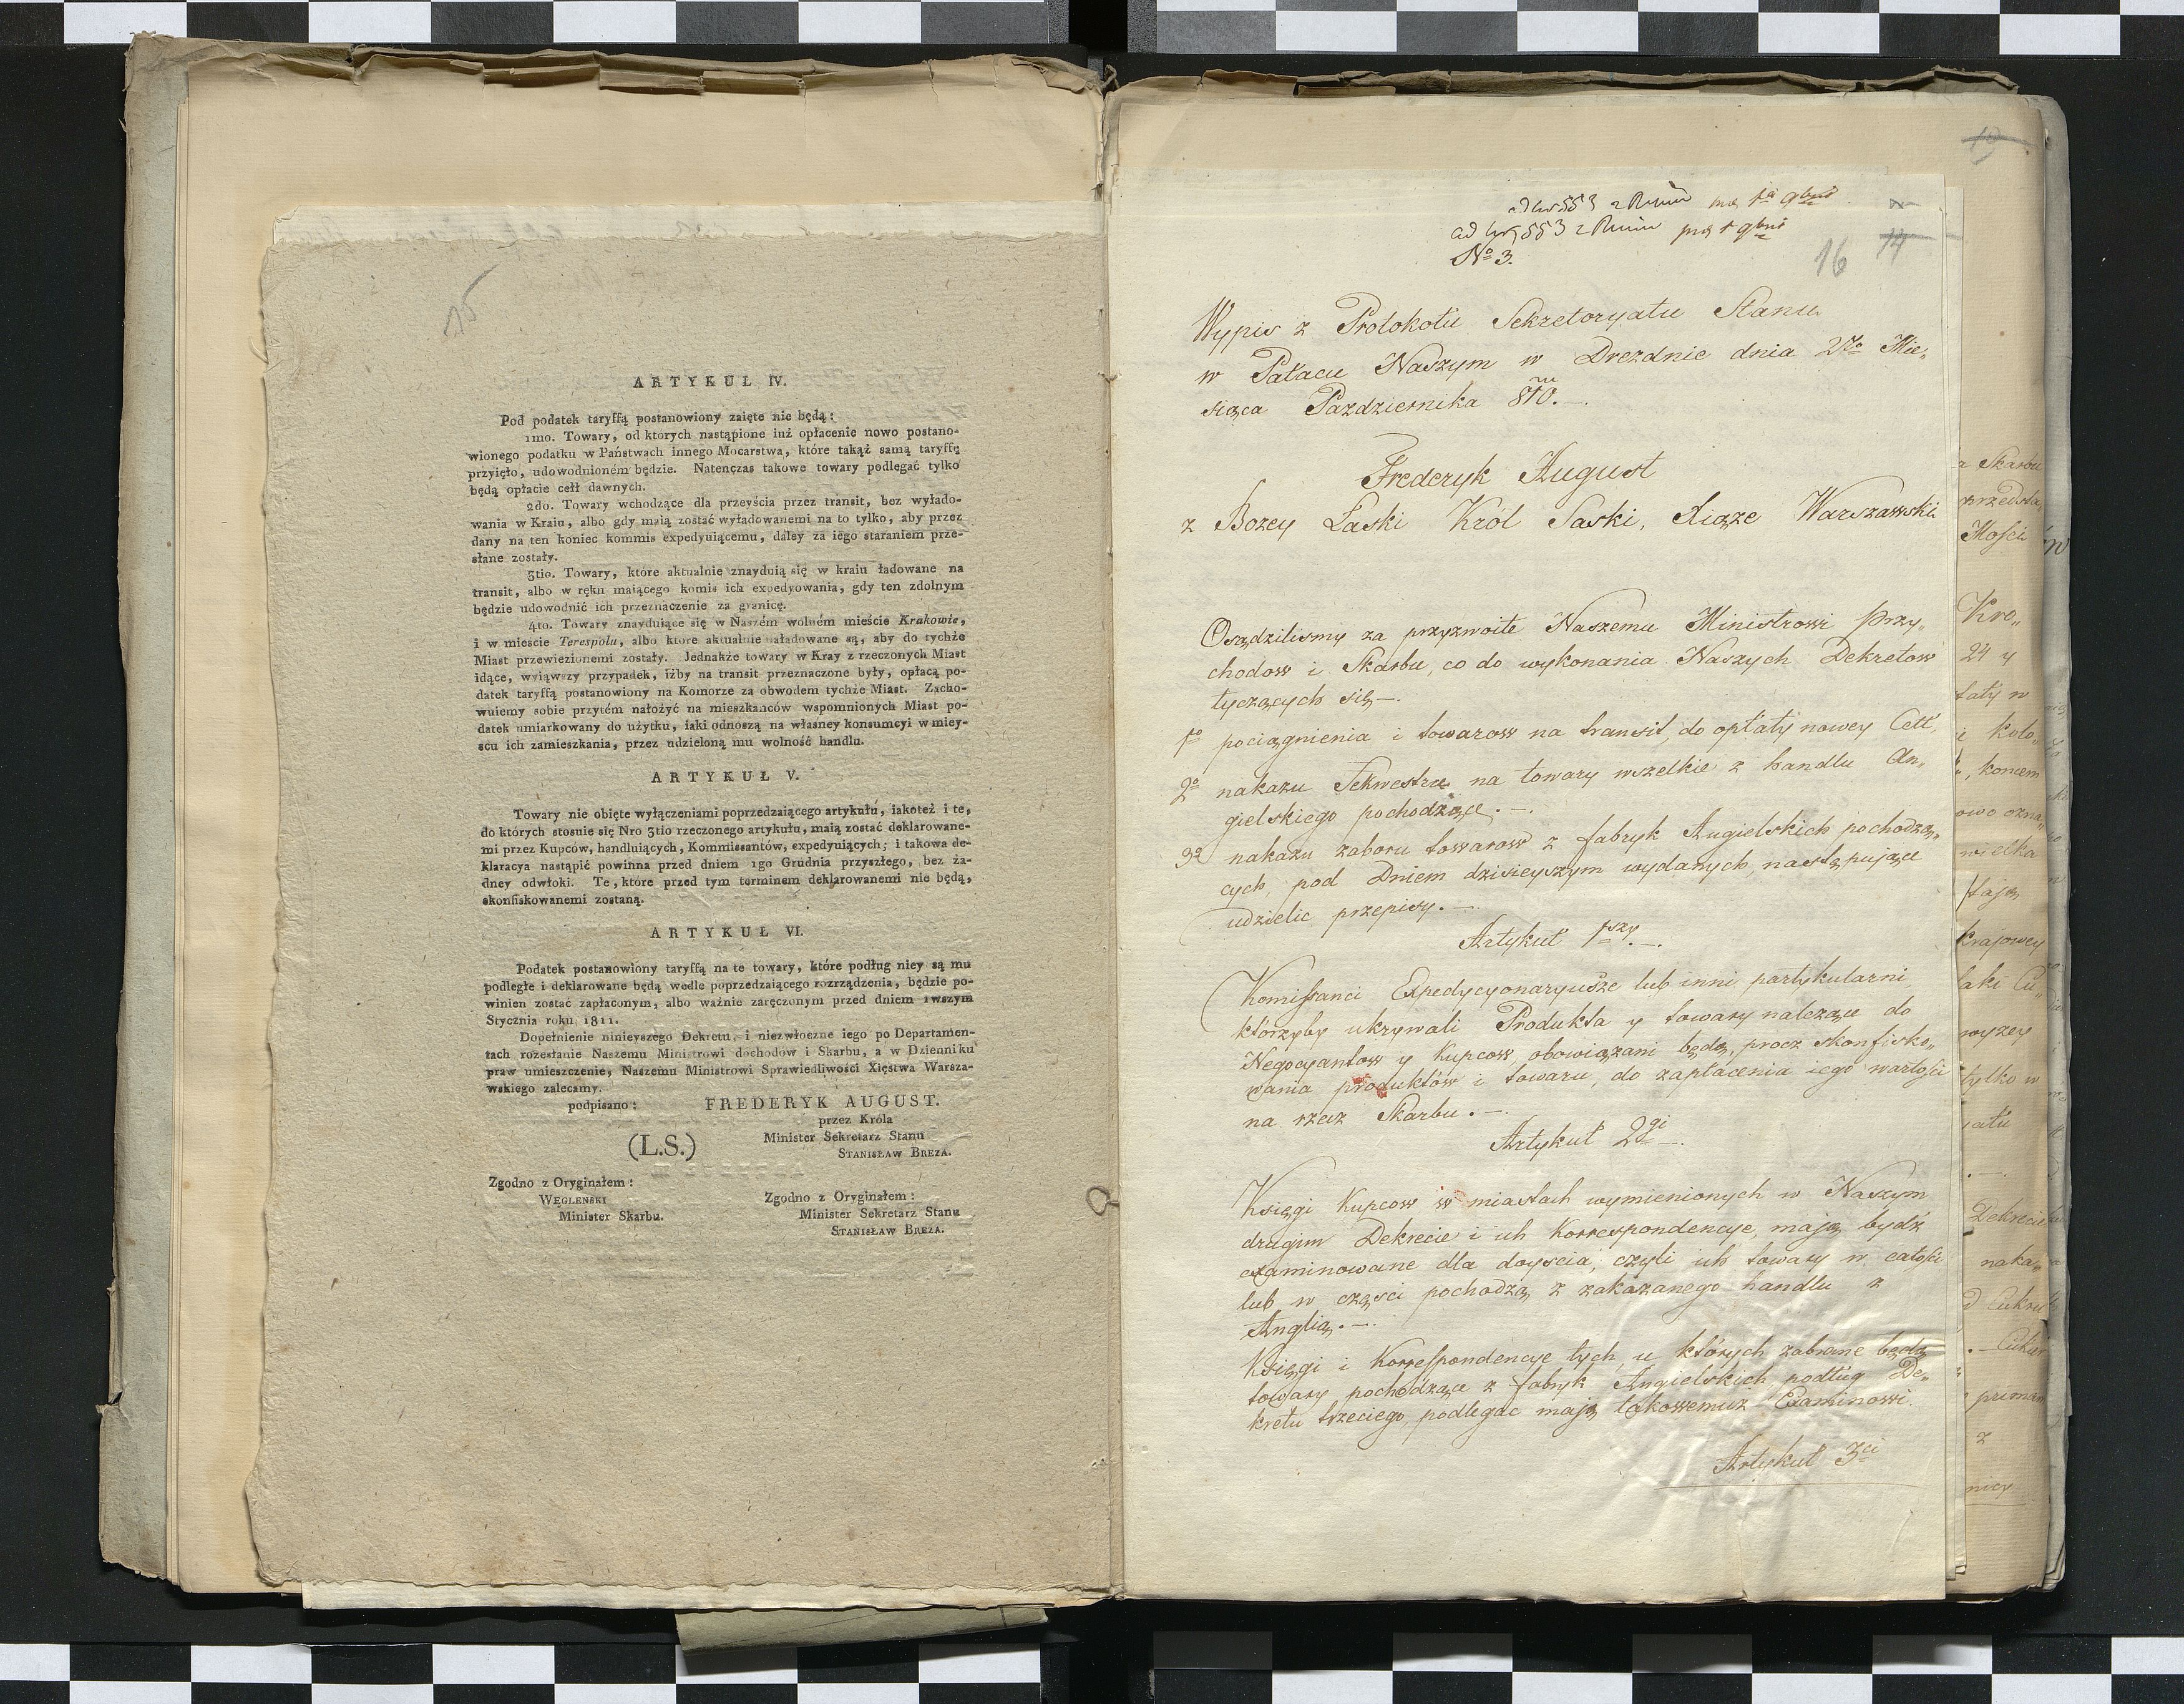 15
ARTYKUŁ IV.
Pod podatek taryffą postanowiony zaięte nie będą:
1mo. Towary, od ktorych nastąpione iuż opłacenie nowo postano-
wionego podatku w Państwach innego Mocarstwa, które takąż samą taryffę
przyięło, udowodnioném będzie. Natenczas takowe towary podlegać tylko
będą opłacie cełł dawnych.
2do. Towary wchodzące dla przeyścia przez transit, bez wyłado-
wania w Kraiu, albo gdy maią zostać wyładowanemi na to tylko, aby przez
dany na ten koniec kommis expedyuiącemu, daley za iego staraniem prze-
słane zostały.
3tio. Towary, które aktualnie znayduią się w kraiu ładowane na
transit, albo w ręku maiącego komis ich expedyowania, gdy ten zdolnym
będzie udowodnić ich przeznaczenie za granicę.
4to. Towary znayduiące się w Naszém wolném mieście Krakowie,
i w mieście Terespolu, albo ktore aktualnie naładowane są, aby do tychże
Miast przewiezionemi zostały. Jednakże towary w Kray z rzeczonych Miast
idące, wyiąwszy przypadek, iżby na transit przeznaczone były, opłacą po-
datek taryffą postanowiony na Komorze za obwodem tychże Miast. Zacho-
wuiemy sobie przytém nałożyć na mieszkańców wspomnionych Miast po-
datek umiarkowany do użytku, iaki odnoszą na własney konsumcyi w miey-
scu ich zamieszkania, przez udzieloną mu wolność handlu.
ARTYKUŁ V.
Towary nie obięte wyłączeniami poprzedzaiącego artykułu, iakoteż i te,
do których stosuie się Nro 3tio rzeczonego artykułu, maią zostać deklarowane-
mi przez Kupców, handluiących, Kommissantów, expedyuiących; i takowa de-
klaracya nastąpić powinna przed dniem 1go Grudnia przyszłego, bez ża-
dney odwłoki. Te, które przed tym terminem deklarowanemi nie będą,
skonfiskowanemi zostaną.
ARTYKUŁ VI.
Podatek postanowiony taryffą na te towary, które podług niey są mu
podległe i deklarowane będą wedle poprzedzaiącego rozrządzenia, będzie po-
winien zostać zapłaconym, albo ważnie zaręczonym przed dniem 1wszym
Stycznia roku 1811.
Dopełnienie ninieyszego Dekretu, i niezwłoczne iego po Departamen-
tach rozesłanie Naszemu Ministrowi dochodów i Skarbu, a w Dzienniku
praw umieszczenie, Naszemu Ministrowi Sprawiedliwości Xięstwa Warsza-
wskiego zalecamy.
podpisano: FREDERYK AUGUST.
przez Króla
(L.S.) Minister Sekretarz Stanu
STANISŁAW BREZA.
Zgodno z Oryginałem:
WĘGLEŃSKI
Minister Skarbu.
Zgodno z Oryginałem:
Minister Sekretarz Stanu
STANISŁAW BREZA.
553
ad 553
No 3.
16 14
Wypis z Protokołu Sekretoryatu Stanu
w Pałacu Naszym w Dreznie dnia 27o Mie„
siąca Pazdziernika 810.
Frederyk August
z Bozey Łaski Król Saski, Xiąze Warszawski
Osądzilismy za przyzwoite Naszemu Ministrowi Przy„
chodow i Skarbu, co do wykonania Naszych Dekretow
tyczących się
1o pociągnienia i towarow na transit, do opłaty nowey Cełł,
2o nakazu Sekwestru na towary wszelkie z handlu An„
gielskiego pochodzące.
3o nakazu zaboru towarow z fabryk Angielskich pochodzą„
cych pod Dniem dzisieyszym wydanych, następujące
udzielic przepisy.
Artykuł 1szy.
Komissanci Expedycyonaryusze lub inni partykularni,
którzyby ukrywali Produkta y towary nalezące do
Negocyantow y Kupcow, obowiązani będą, procz skonfisko„
wania produktów i towaru, do zapłacenia iego wartości
na rzecz Skarbu.
Artykuł 2gi
Księgi Kupcow w miastach wymienionych w Naszym
drugim Dekrecie i ich Korrespondencye, mają bydź
examinowane dla doyscia, czyli ich towary w całości
lub w części pochodzą z zakazanego handlu z
Anglią.
Księgi i Korrespondencye tych, u których zabrane będą
towary pochodzące z fabryk Angielskich podług De„
kretu trzeciego, podlegac mają takowemuz Examinowi.
Artykuł 3ci